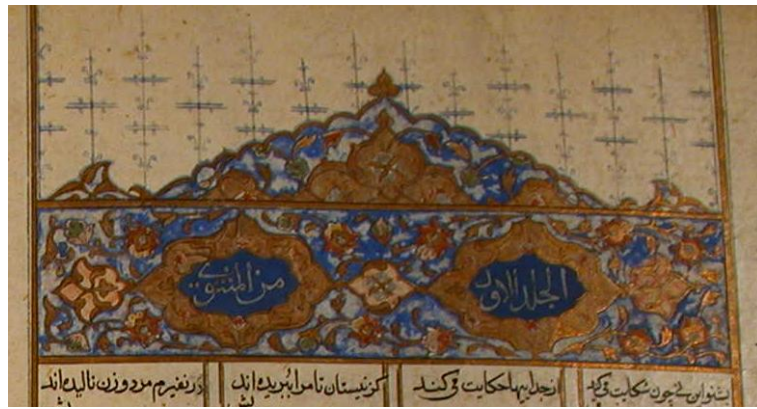 الجلد الاول من المثنوی
بشنو این نی چون شکایت می کند از جداییها حکایت می کند کز نیستان تا مرا ببریده اند در نفیرم مرد و زن نالیده اند